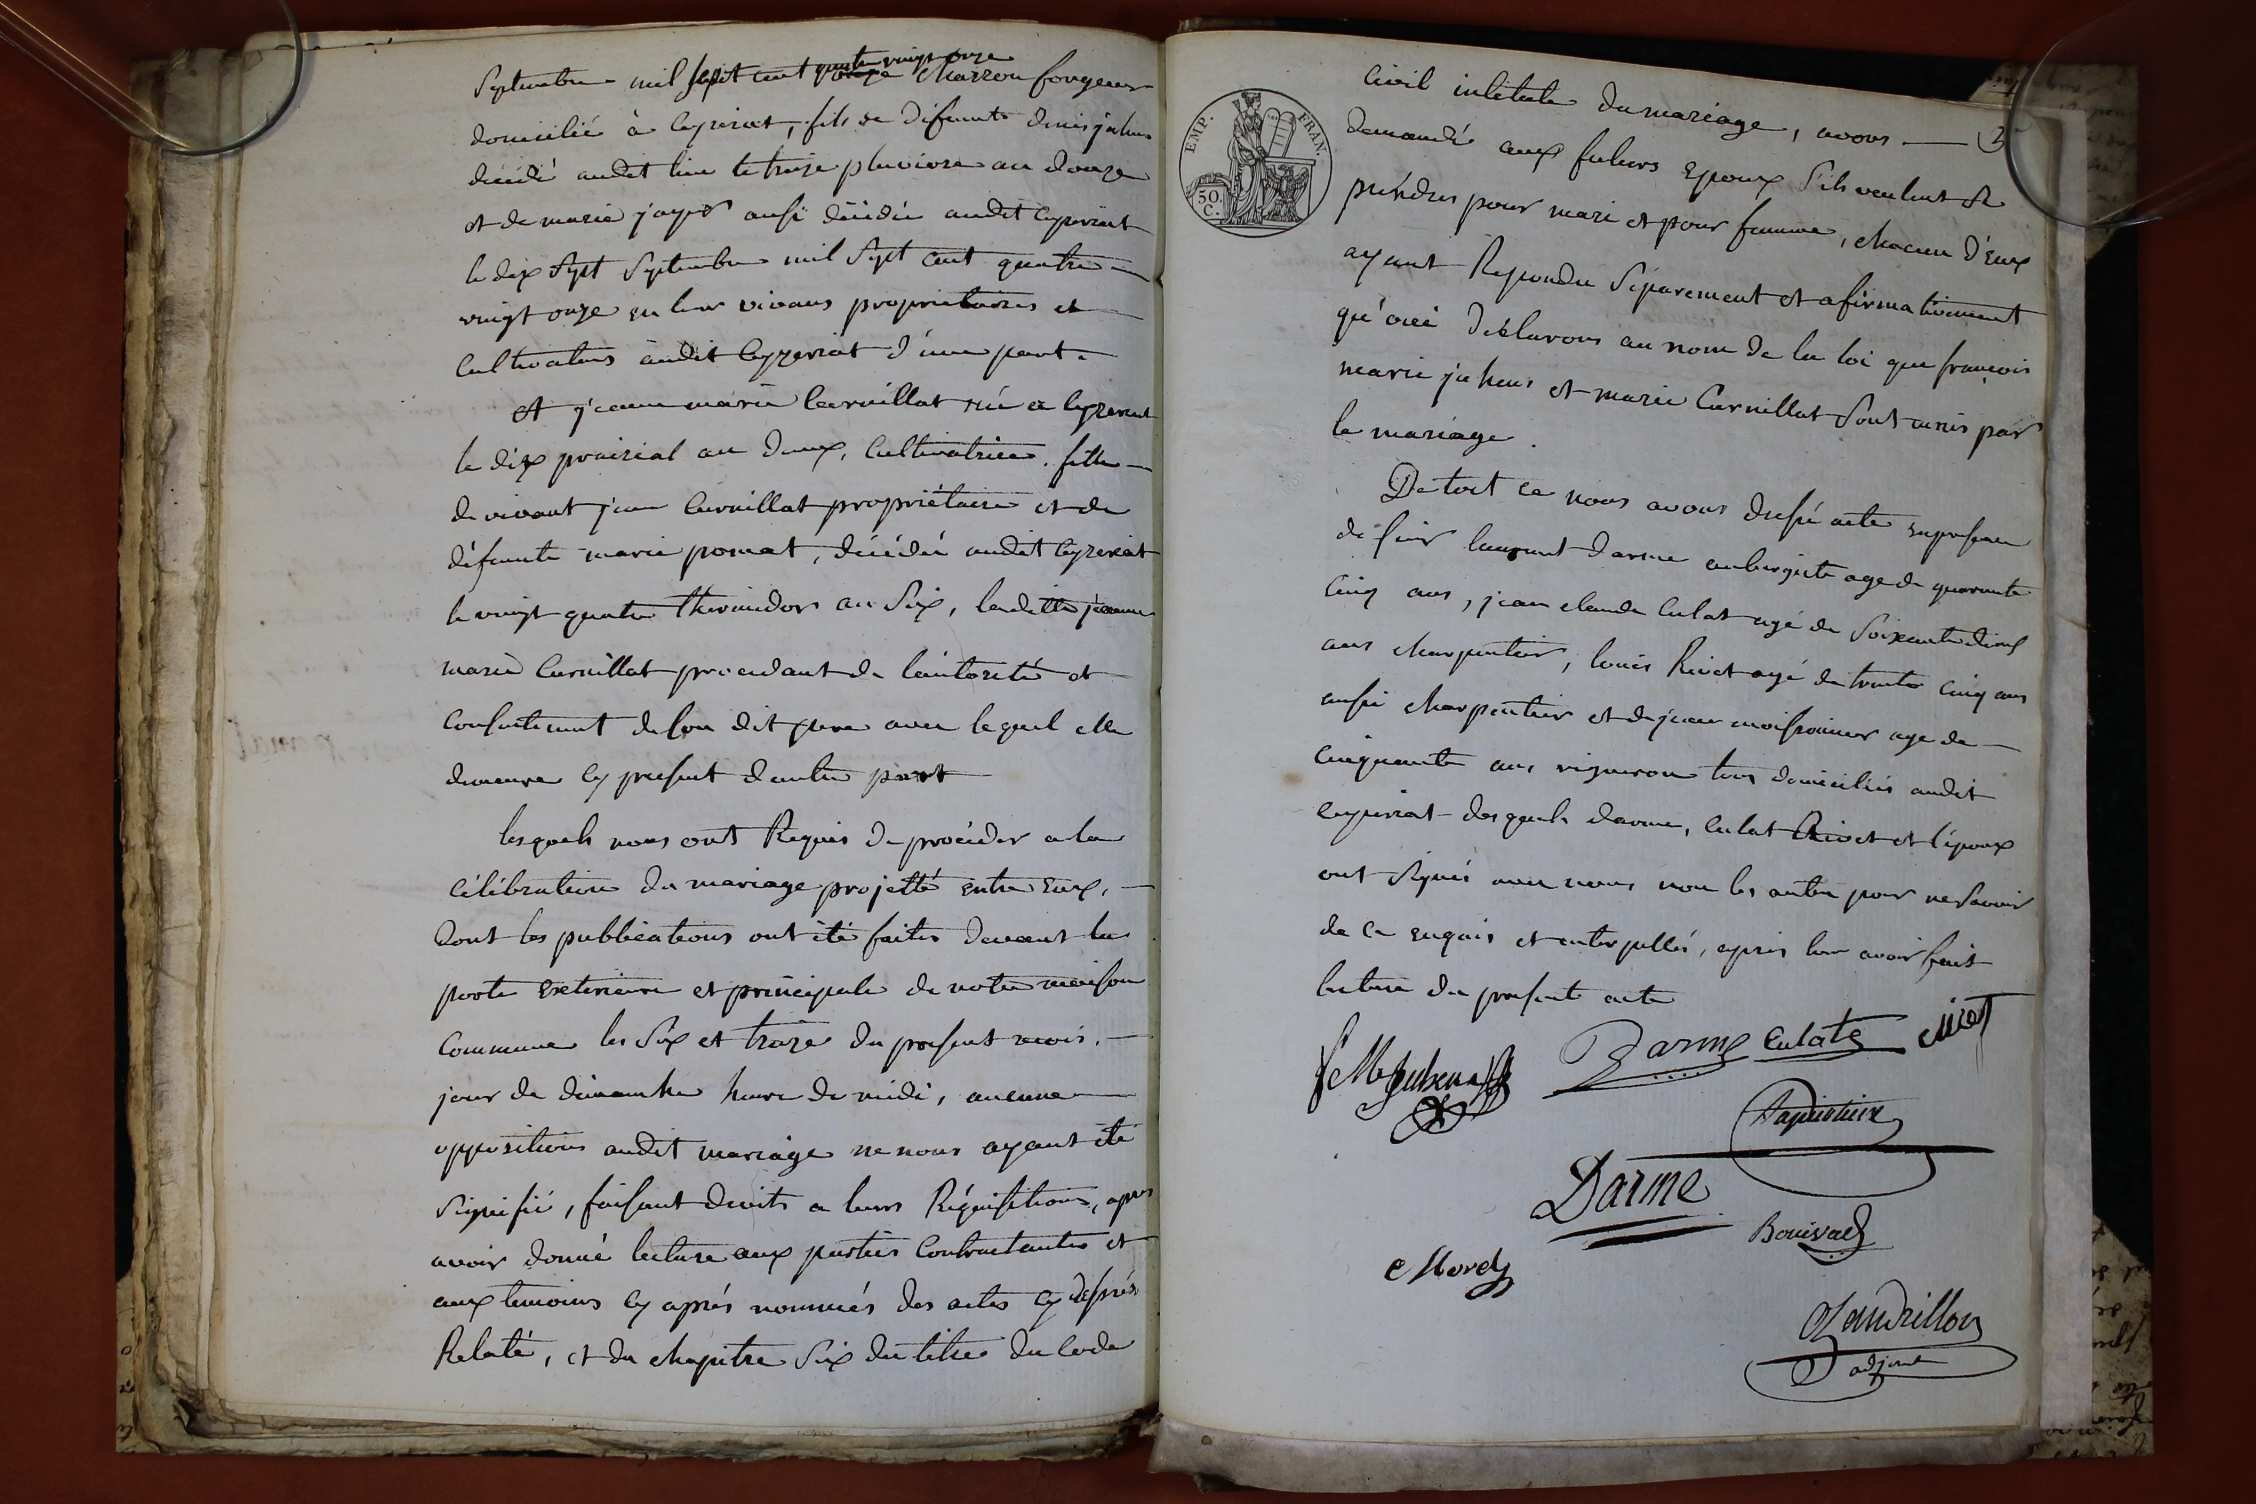 Septembre mil sept cent quatre vingt onze charron forgeur
domicilié à Ceyzeriat, fils de defunts denis juhem
décédé audit lieu le treize pluviose an douze
et de marie jayr aussi décédée audit Ceyzeriat
le dix sept Septembre mil sept cent quatre
vingt onze en leur vivans proprietaires et
Cultivateurs audit Ceyzeriat d'une part.
Et jeanne marie Curnillat née a Ceyzeriat
le dix prairial an deux, Cultivatrice, fille
de vivant jean Curnillat propriétaire et de
défunte marie pomat, décédée audit Ceyzeriat
le vingt quatre thermidor an Six, laditte jeanne
marie Curnillat procedant de l'autorité et
Consentement de son dit pere avec lequel elle
demeure cy present d'autre part
lesquels nous ont Requis de procéder a la
Célébration du mariage projetté entre Eux,
Dont les publications ont été faites devant la
porte Exterieure et principale de notre maison
Commune les Six et treize du present mois,
jour de dimanche heure de midi, aucune
opposition audit mariage ne nous ayant été
Signifié, faisant droit a leurs Réquisitions, apres
avoir donné lecture aux parties Contractantes et
aux temoins cy aprés nommés des actes cy després
Relaté, et du chapitre Six du titre du Code
EMP. FRAN.
50 C.
Civil intitulé du mariage, avons
2
demandé aux futurs Epoux S'ils veulent se
prendre pour mari et pour femme, chacun d'Eux
ayant Repondu Séparement et afirmativement
déclarons au nom de la loi que françois
marie juhem et marie Curnillat Sont unis par
le mariage.
De tout ce nous avons dressé acte en presence
de sieur laurent darme aubergiste age de quarante
Cinq ans, jean claude Culat agé de Soixante
ans charpentier, louis Rivet agé de trente Cinq ans
aussi charpentier et de jean moissonnier age de
Cinquante ans vigneron tous domiciliés audit
Ceyzeriat desquels darme, Culat Rivet et l'époux
ont Signés avec nous non les autres pour ne savoir
de ce enquis et interpellés, apres leur avoir fait
lecture du present acte
F M Juhem
Darme Culate Rivet
Darme
Bouivad
C Morel
Gandrillon
adjoint